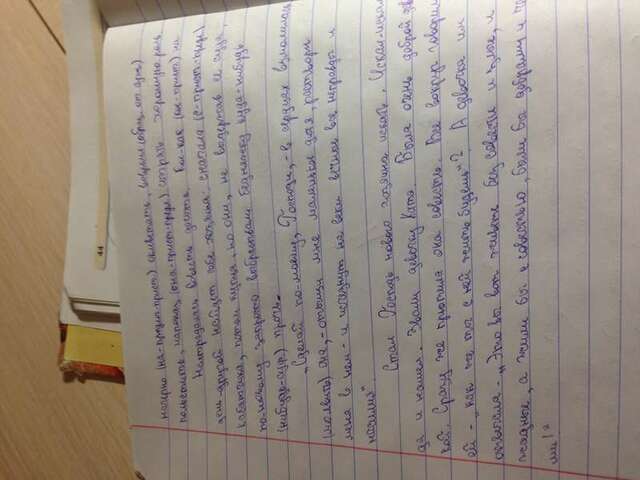 44
начерно (на-пригл-прист) скитать, вовремя (образ. от сущ)
поместить, напоказ, (она-прист-предл) играть хорошую роль
Настрадалась совесть досыта. Кое-как (ое-прист) на
день-другой найдут себе хозяина: сначала (с-прист-предл)
кабатчика, потом купца, но они, не выдержав её суда,
по-моему запросто выбрасывали бедняжку куда-нибудь
(нибудь-суф) прочь.
„Сделай по-моему, Господи, - в сердцах взмолилась
(молвить) она, - отыщи мне маленькое дитя, раствори
меня в нем - и исчезнут на веки вечное все неправды и
насилия".
Стал Господь нового хозяина искать. Искал-искал
да и нашел. Звали девочку Катя. Была очень доброй дев
кой. Сразу же приютила она совесть. Все вокруг говорили
ей - „как же ты с ней жить будешь"? А девочка им
отвечала - „Это вы вот живете без совести и злые, и
жадные, а жили бы с совестью, были бы добрыми и че
ми!"